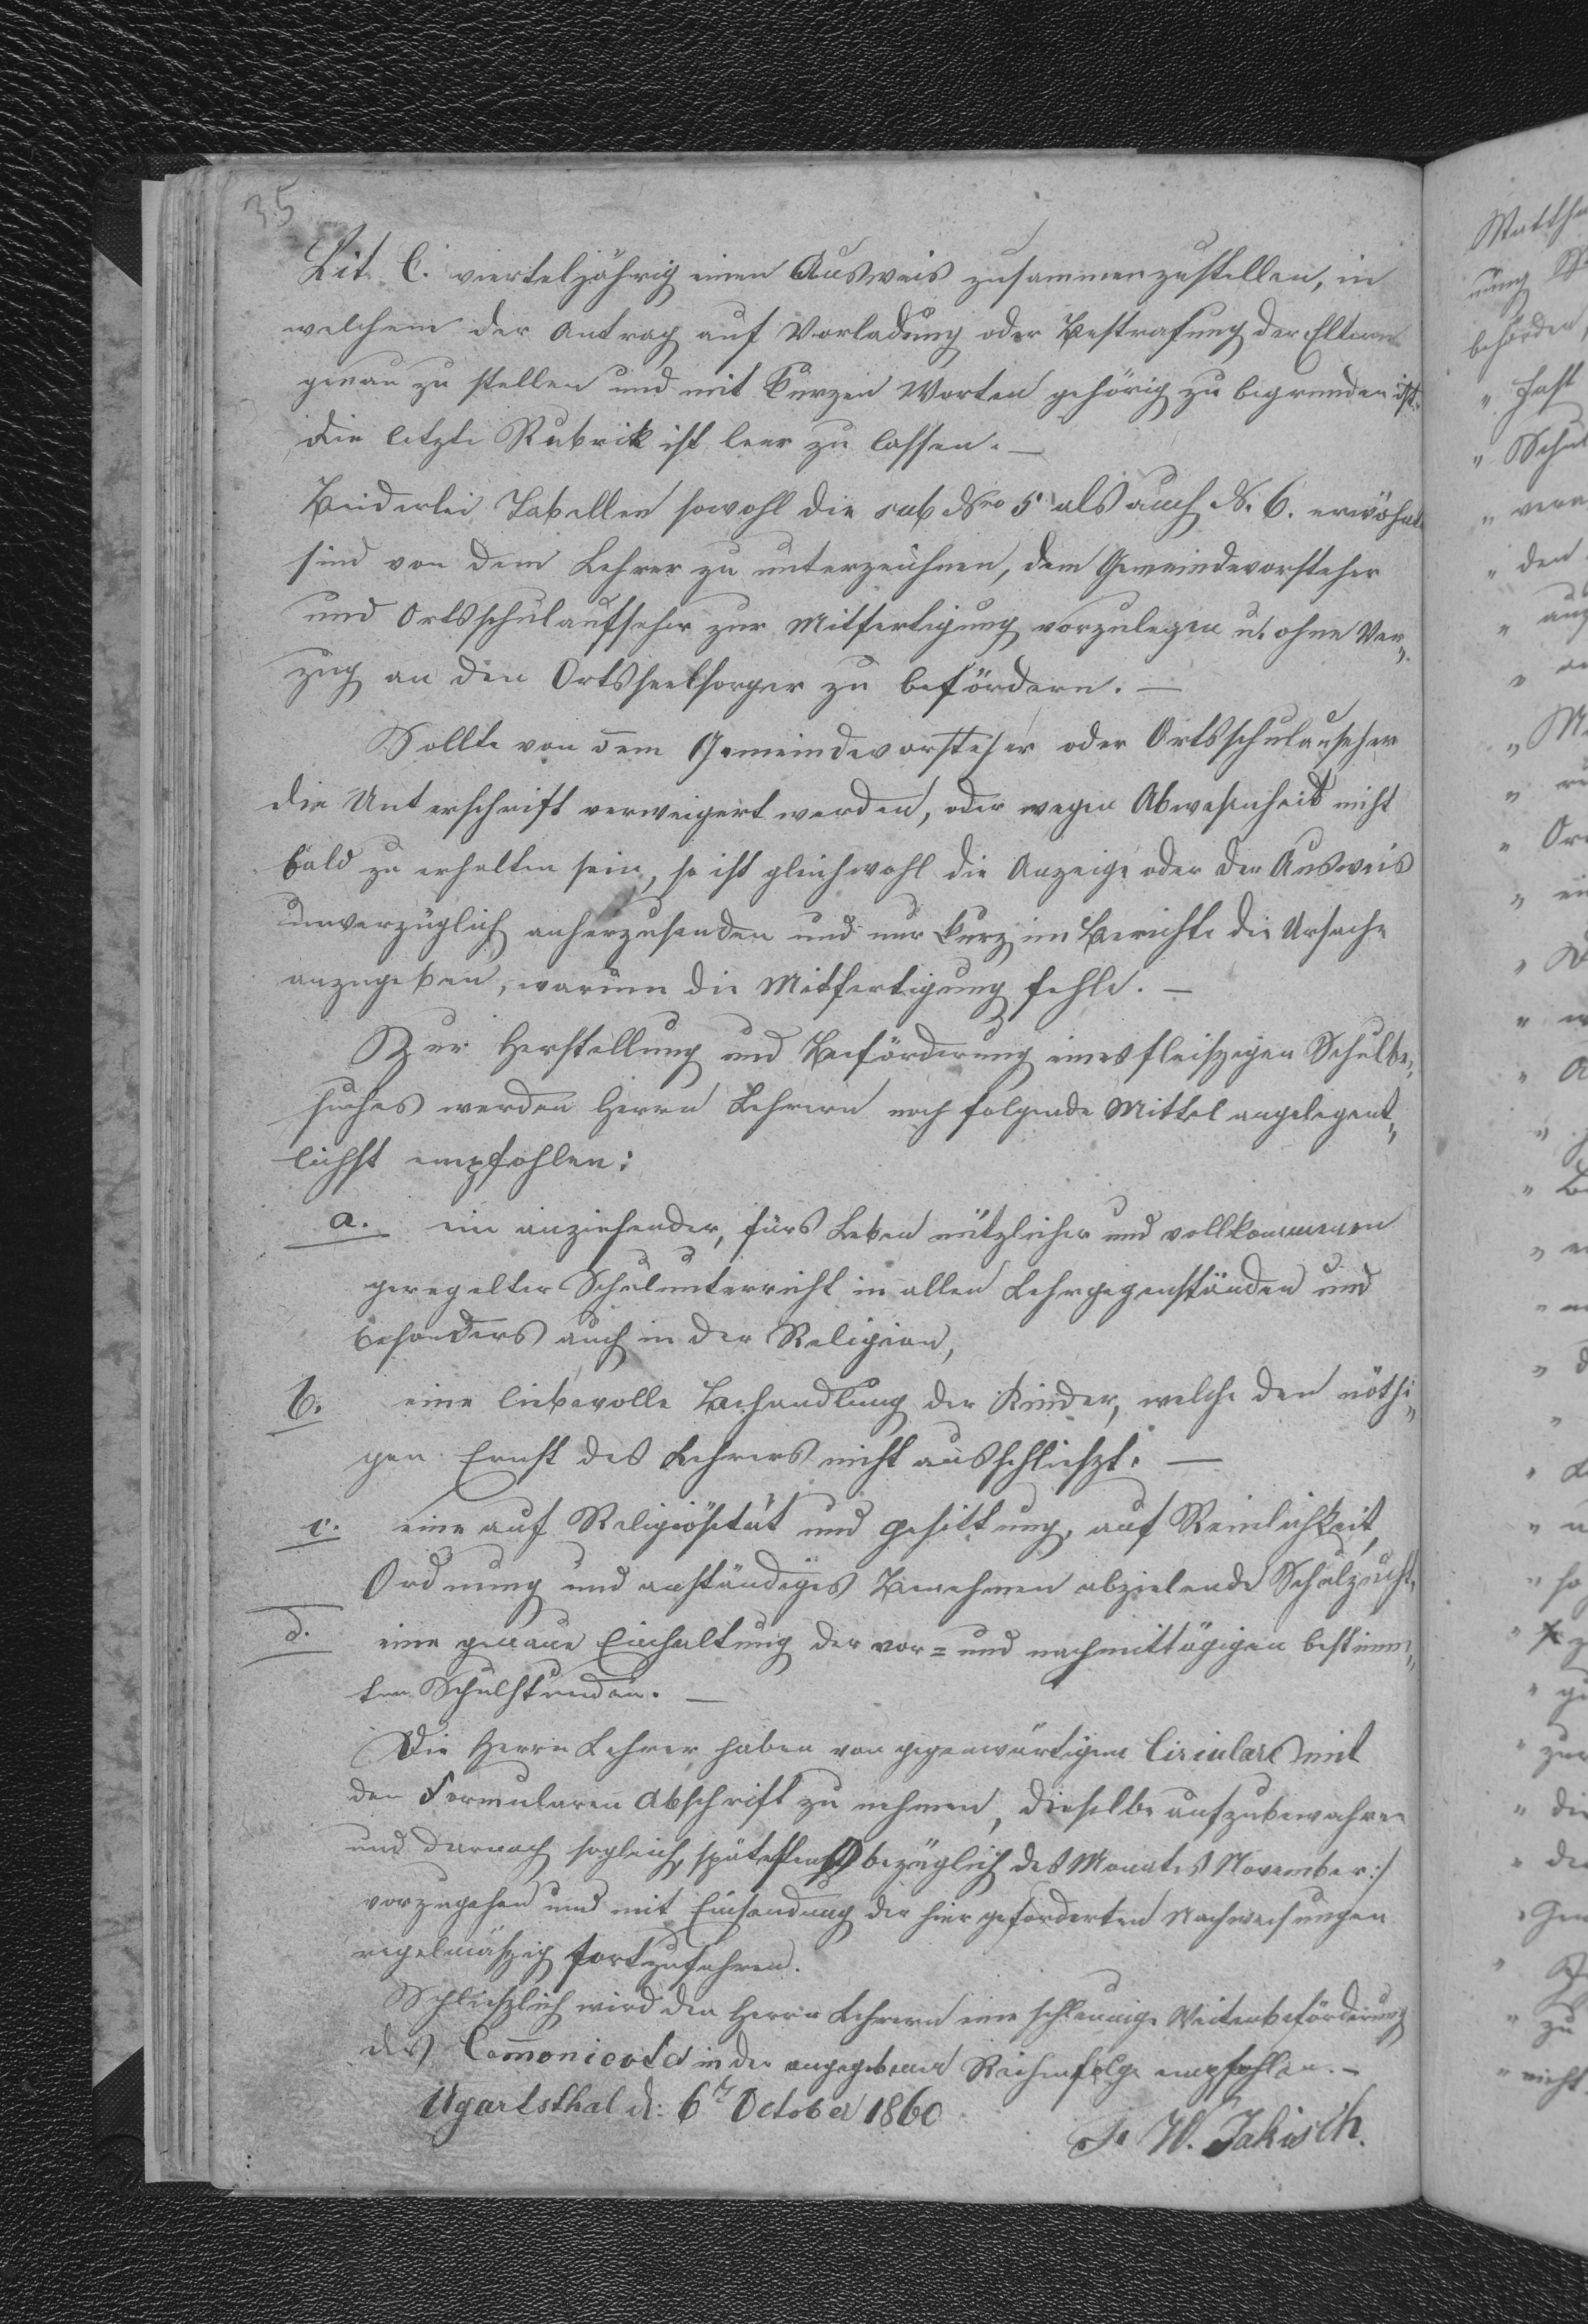 35
Lit C. vierteljährig einen Ausweis zusammenzustellen, in
welchem der Antrag auf Vorladung oder Bestrafung der Eltern
genau zu stellen und mit kurzen Worten gehörig zu begründen ist.
die letzte Rubrik ist leer zu lassen. —
Beiderlei Tabellen sowohl die sub Nro 5 als auch N. 6. erwähnt
sind von dem Lehrer zu unterzeichnen, dem Gemeindevorsteher
und Ortsschulaufseher zur Mitfertigung vorzulegen u. ohne Ver„
zug an den Ortsseelsorger zu befördern. —
Sollte von dem Gemeindevorsteher oder Ortsschulauseher
die Unterschrift verweigert werden, oder wegen Abwesenheit nicht
bald zu erhalten sein, so ist gleichwohl die Anzeige oder der Ausweis
unverzüglich anherzusenden und nur kurz im Berichte die Ursache
anzugeben, warum die Mitfertigung fehle. —
Zur Herstellung und Beförderung eines fleiszigen Schulbe„
suches werden Herrn Lehrern noch folgende Mittel angelegent„
lichst empfohlen:
a. ein anziehender, fürs Leben nützlicher und vollkommen
geregelter Schulunterricht in allen Lehrgegenständen und
besonders auch in der Religion,
b. eine liebevolle Behandlung der Kinder, welche den nöthi„
gen Ernst des Lehrers nicht ausschlieszt. —
c. eine auf Religiösität und Gesittung, auf Reinlichkeit,
Ordnung und anständiges Benehmen abzielende Schulzucht,
d. eine genaue Einhaltung der vor= und nachmittägigen bestimm„
ten Schulstunden. —
Die Herrn Lehrer haben von gegenwärtigem Circulare mit
den Formularen Abschrift zu nehmen, dieselbe aufzubewahren
und darnach sogleich, spätestens bezüglich des Monates November :/
vorzugehen und mit Einsendung der hier geforderten Nachweisungen
regelmäszig fortzufahren.
Schlieszlich wird den Herrn Lehrern eine schleunige Weiterbeförderung
des in der angegebenen Reihenfolge empfohlen. —
Ugartsthal d: 6t October 1860
J. W. Jakisch.
behörden
" fast
" den
" nicht